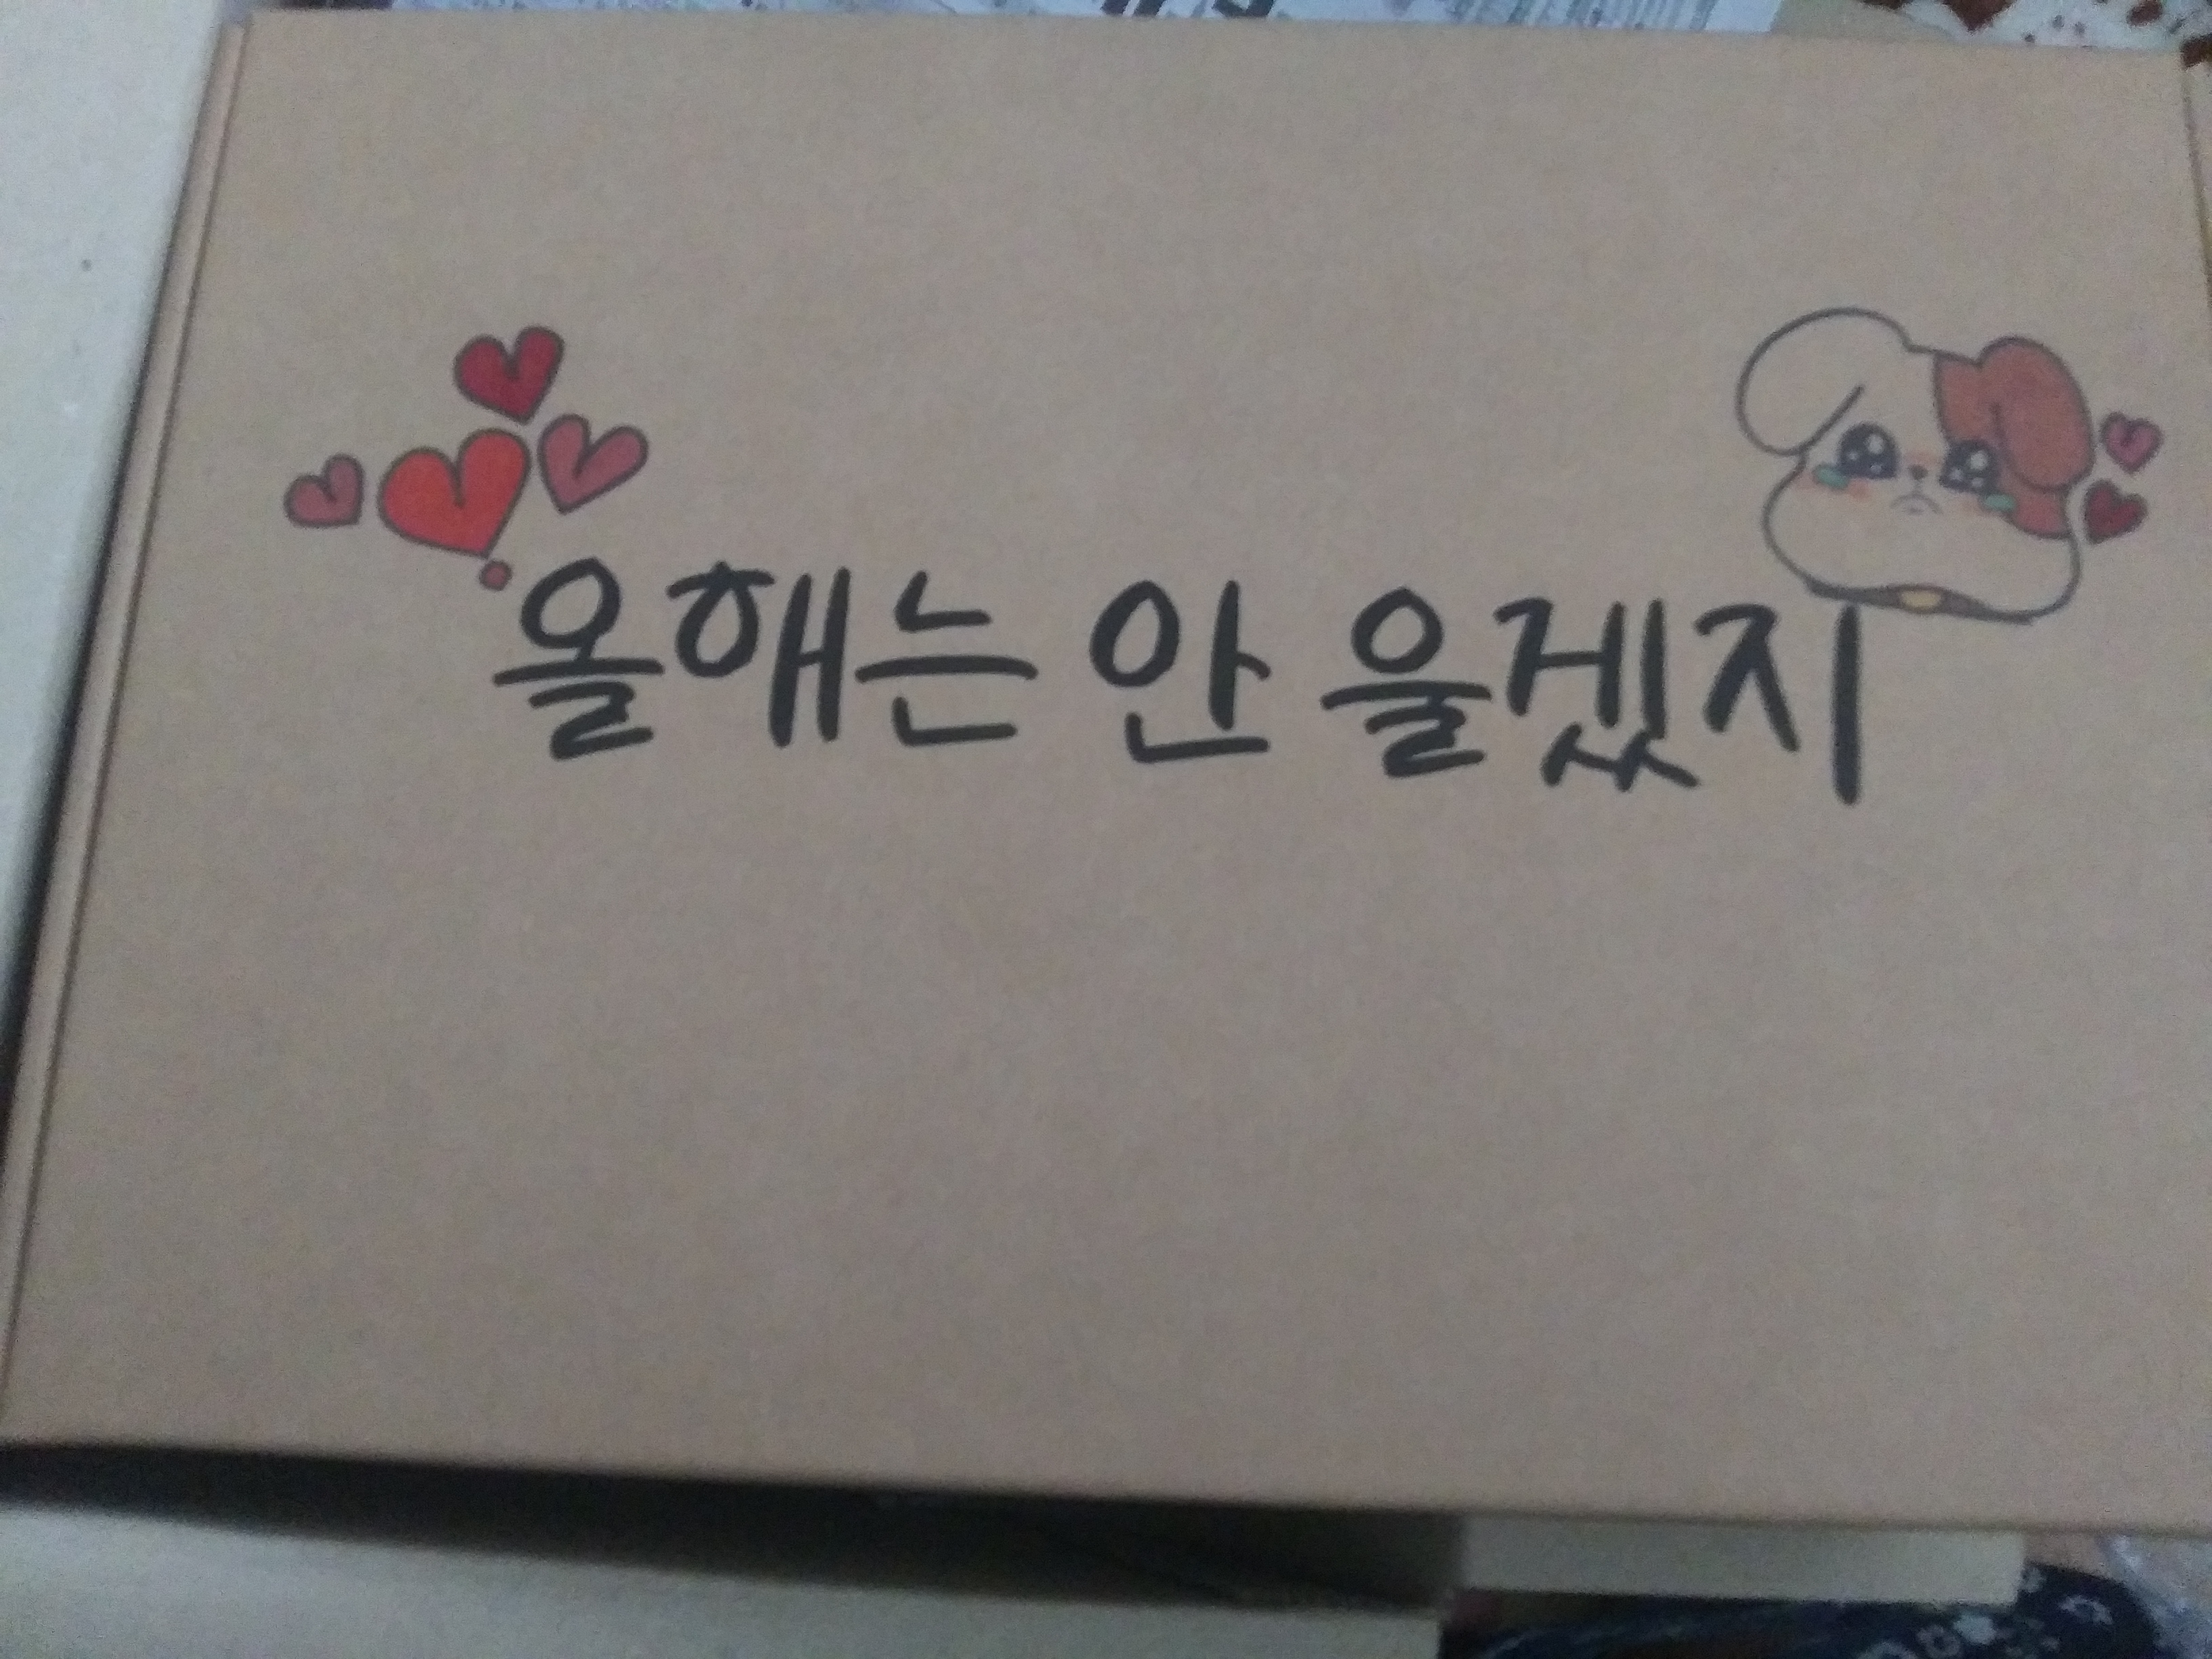 올해는 안 울겠지